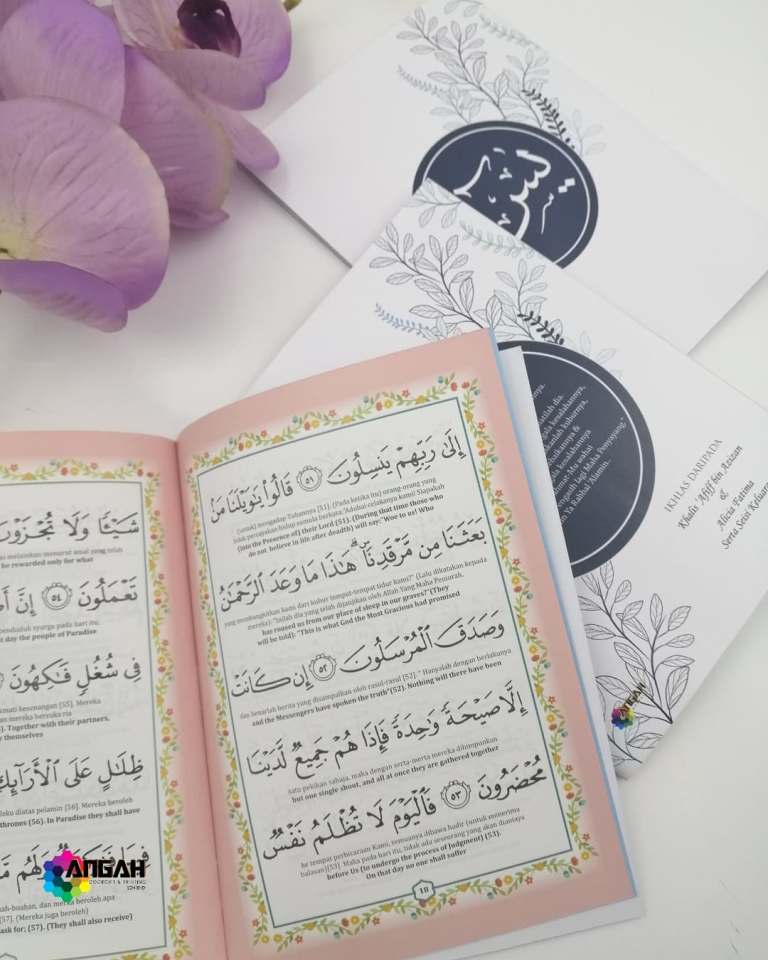 يس
IKHLAS DARIPADA
Khalis 'Afiff bin Azizan
&
Alicia Fatima
Serta Seisi Keluarga
إِلَىٰ رَبِّهِمْ يَنسِلُونَ ٥١ قَالُوا۟ يَٰوَيْلَنَا مَنۢ
(untuk) mengadap Tuhannya [51]. (Pada ketika itu) orang-orang yang
tidak percayakan hidup semula berkata:"Aduhai celakanya kami! Siapakah
(into the Presence of) their Lord (51). (During that time those who
do not believe in life after deadth) will say:"Woe to us! Who
بَعَثَنَا مِن مَّرْقَدِنَا ۜ هَٰذَا مَا وَعَدَ ٱلرَّحْمَٰنُ
yang membangkitkan kami dari kubur tempat-tempat tidur kami?" (Lalu dikatakan kepada
mereka): "Inilah dia yang telah dijanjikan oleh Allah Yang Maha Pemurah.
has roused us from our place of sleep in our graves?" (They
will be told): "This is what God the Most Gracious had promised
وَصَدَقَ ٱلْمُرْسَلُونَ ٥٢ إِن كَانَتْ
dan benarlah berita yang disampaikan oleh rasul-rasul [52]. " Hanyalah dengan berlakunya
and the Messengers have spoken the truth"(52). Nothing will there have been
إِلَّا صَيْحَةً وَٰحِدَةً فَإِذَا هُمْ جَمِيعٌ لَّدَيْنَا
satu pekikan sahaja, maka dengan serta-merta mereka dihimpunkan
but one single shout, and all at once they are gathered together
مُحْضَرُونَ ٥٣ فَٱلْيَوْمَ لَا تُظْلَمُ نَفْسٌ
ke tempat perbicaraan Kami, semuanya dibawa hadir (untuk menerima
balasan)[53]. Maka pada hari itu, tidak ada seseorang yang akan dianiaya
before Us (to undergo the process of Judgment) (53).
On that day no one shall suffer
18
شَيْـًٔا وَلَا تُجْزَوْنَ
as melainkan menurut amal yang telah
be rewarded only for what
تَعْمَلُونَ ٥٤ إِنَّ
penduduk syurga pada hari itu,
t day the people of Paradise
فِى شُغُلٍ فَٰكِهُونَ
kmati kesenangan [55]. Mereka
n mereka bersuka ria
). Together with their partners,
y themselves
ظِلَٰلٍ عَلَى ٱلْأَرَآئِكِ
leku diatas pelamin [56]. Mereka beroleh
thrones (56). In Paradise they shall have
ah-boahan, dan mereka beroleh apa
[57]. (Mereka juga beroleh)
ask for; (57). (They shall also receive)
ANGAH